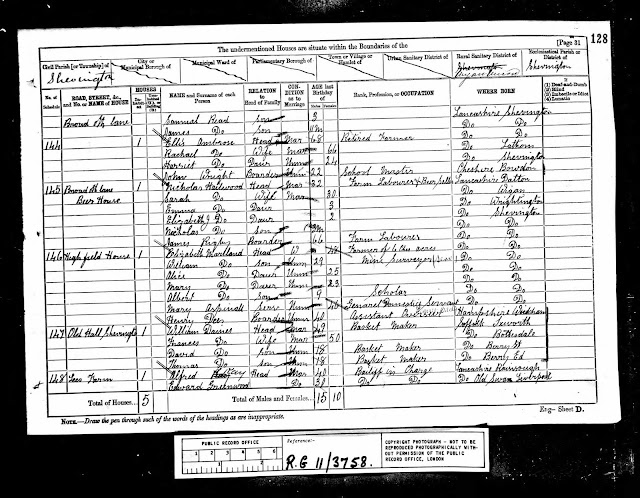 The undermentioned Houses are situate within the Boundaries of the
[Page 31
128
Civil Parish [or Township] of
Shevington
City or Municipal Borough of
Municipal Ward of
Parliamentary Borough of
Town or Village or Hamlet of
Urban Sanitary District of
Rural Sanitary District of
Ecclesiastical Parish or District of
Shevington
No. of Schedule
ROAD, STREET, &c., and No. or NAME of HOUSE
HOUSES
NAME and Surname of each Person
RELATION to Head of Family
CONDITION as to Marriage
AGE last Birthday of
Rank, Profession, or OCCUPATION
WHERE BORN
If (1) Deaf-and-Dumb (2) Blind (3) Imbecile or Idiot (4) Lunatic
Broad oth lane Samuel Read Son 3 Lancashire Shevington
James Do Son Do Do
144 1 Ellis Ambrose Head Mar 68 Retired Farmer Do Do
Rachael Do Wife Mar 66 Do Lathom
Harriet Do Daur Unm 24 Do Shevington
John Wright Boarder Unm 22 School Master Cheshire Bowdon
145 Broad oth lane 1 Nicholas Hailwood Head Mar 32 Farm Labourer & Beer seller Lancashire Dalton
Beer House Sarah Do Wife Mar 30 Do Wigan
Emma Do Daur 3 Do Wrightington
Elizabeth J Do Daur 2 Do Shevington
Nicholas Do Son Do Do
James Rigby Boarder 66 Farm Labourer Do Do
146 Highfield House 1 Elizabeth Martland Head W Farmer of acres Do Do
William Do Son Unm 29 Mine Surveyor Do Do
Alice Do Daur Unm 25 Do Do
Mary Do Daur Unm 23 Do Do
Albert Do Son 9 Scholar Do Do
Mary Aspinall Serv Unm General Domestic Servant Do Do
Henry Boarder Unm 40 Assistant Overseer Hampshire
147 Old Hall, Shevington 1 William Daines Head Mar 49 Basket Maker Suffolk Ixworth
Frances Do Wife Mar 50 Do Bottesdale
David Do Son Unm 18 Basket Maker Do
Thomas Do Son Unm 18 Basket Maker Do
148 Lees Farm 1 Alfred Head Mar 40 Bailiff in Charge Lancashire
Edward Greenwood Do 38 Do Do Do Old Swan Liverpool
Total of Houses... 5
Total of Males and Females... 15 10
NOTE.—Draw the pen through such of the words of the headings as are inappropriate.
Eng—Sheet D.
PUBLIC RECORD OFFICE
1 2 3 4 5 6
1 2
Reference:-
R.G 11/3758.
COPYRIGHT PHOTOGRAPH - NOT TO BE REPRODUCED PHOTOGRAPHICALLY WITHOUT PERMISSION OF THE PUBLIC RECORD OFFICE, LONDON